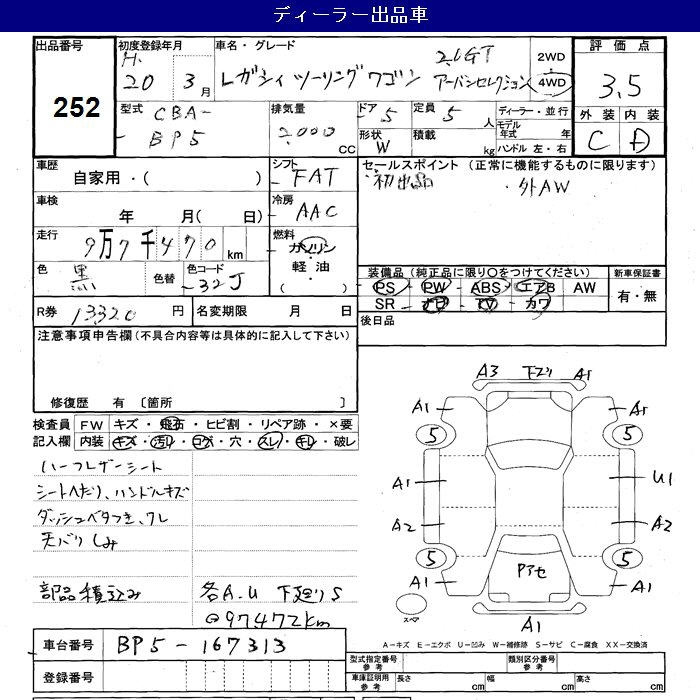 ディーラー出品車
出品番号 252
初度登録年月 H. 20 3月
車名・グレード レガシィ ツーリングワゴン 2.0GT アーバンセレクション
2WD 4WD
評価点 3.5
外装 内装
C D
型式 CBA- BP5
排気量 2,000 CC
ドア 5
定員 5 人
形状 W
積載 kg
ディーラー・並行
モデル年式 年
ハンドル 左・右
車歴 自家用・( )
シフト FAT
セールスポイント (正常に機能するものに限ります)
・初出品 ・外AW
車検 年 月( 日)
冷房 AAC
走行 9万7千470km
燃料 ガソリン・軽油・
色 黒
色替
色コード 32J
装備品 (純正品に限り○をつけてください)
PS PW ABS エアB AW
SR ナビ TV カワ
新車保証書 有・無
R券 13320円
名変期限 月 日
後日品
注意事項申告欄(不具合内容等は具体的に記入して下さい)
修復歴 有〔箇所 〕
検査員記入欄
FW キズ・飛石・ヒビ割・リペア跡・×要
内装 キズ・汚レ・コゲ・穴・スレ・キレ・破レ
ハーフレザーシート
シートヘたり、ハンドルキズ
ダッシュベタつき、ワレ
天バリしみ
部品積込み
各A.U 下廻りS
@97472km
A3 下廻り A1
A1 A1
5 5
A1 U1
A2 A2
5 5
A1 Pアセ A1
スペア
A1
A=キズ E=エクボ U=凹み W=補修跡 S=サビ C=腐食 XX=交換済
車台番号 BP5-167313
登録番号
型式指定番号 参考
類別区分番号 参考
車庫証明用 参考 長さ cm 幅 cm 高さ cm